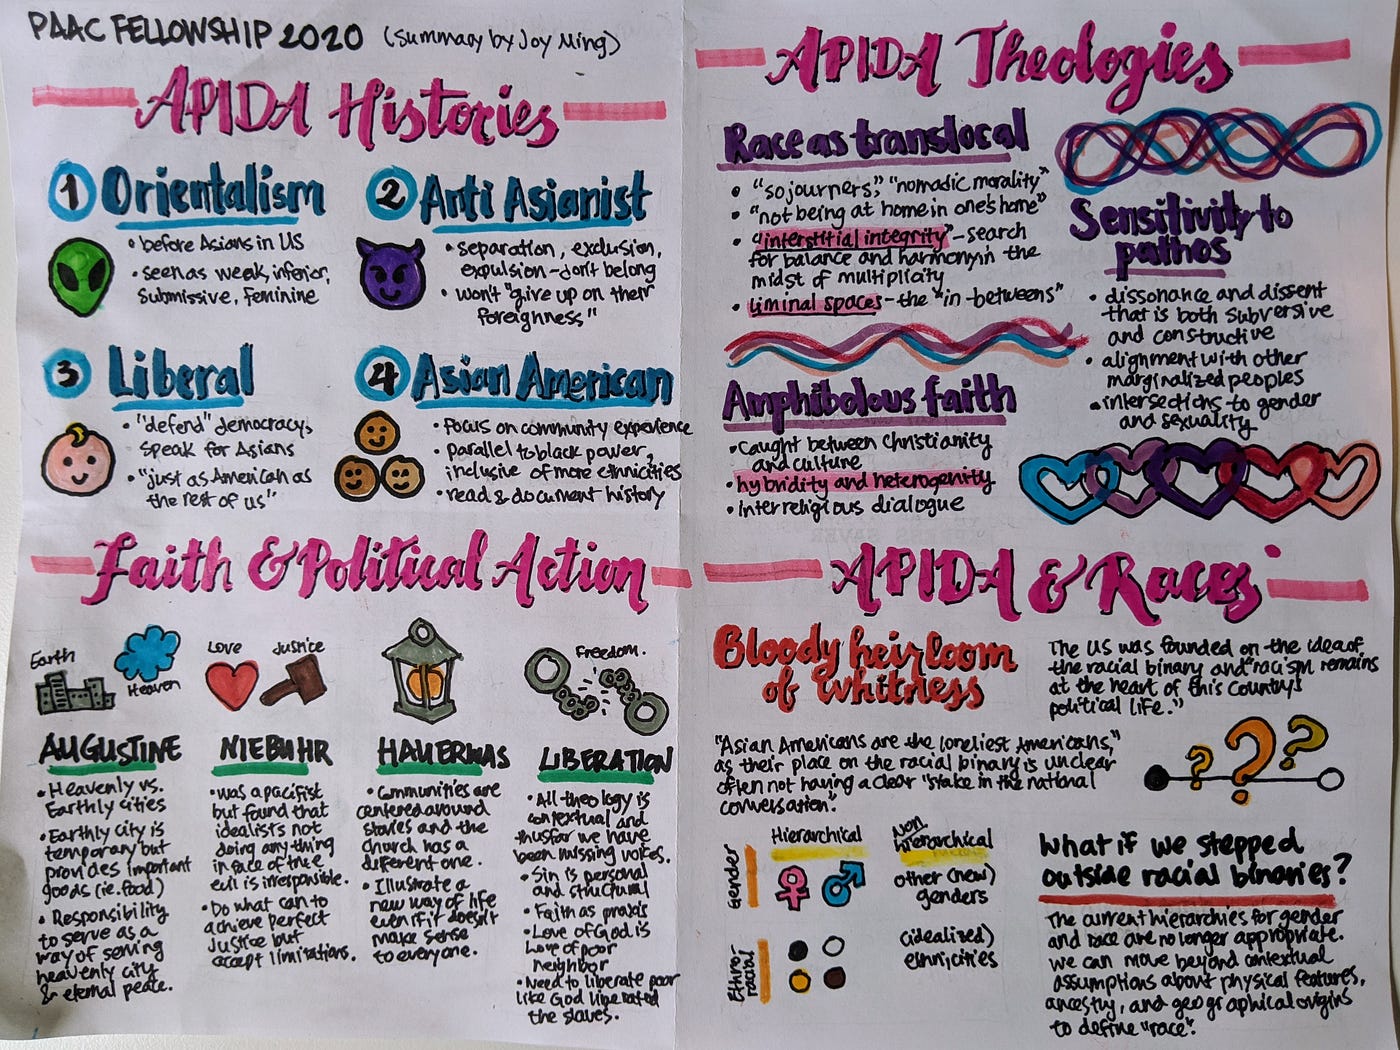 PAAC FELLOWSHIP 2020 (summary by Joy Ming)
APIDA Histories
1 Orientalism
• before Asians in US
• seen as weak, inferior,
submissive, feminine
2 Anti Asianist
• separation, exclusion,
expulsion - don't belong
• won't "give up on their
foreignness"
3 Liberal
• "defend" democracy,
speak for Asians
• "just as American as
the rest of us"
4 Asian American
• focus on community experience
• parallel to black power,
inclusive of more ethnicities
• read & document history
APIDA Theologies
Race as translocal
• "sojourners," "nomadic morality"
• "not being at home in one's home"
• "interstitial integrity" - search
for balance and harmony in the
midst of multiplicity
• liminal spaces - the "in-betweens"
Sensitivity to
pathos
• dissonance and dissent
that is both subversive
and constructive
• alignment with other
marginalized peoples
• intersections to gender
and sexuality
Amphibolous faith
• Caught between Christianity
and culture
• hybridity and heterogenity
• Interreligious dialogue
Faith & Political Action
Earth
Heaven
AUGUSTINE
• Heavenly vs.
Earthly cities
• Earthly city is
temporary but
provides important
goods (ie. food)
• Responsibility
to serve as a
way of serving
heavenly city
& eternal peace.
Love Justice
NIEBUHR
• was a pacifist
but found that
idealists not
doing anything
in face of true
evil is irresponsible.
• Do what can to
achieve perfect
justice but
accept limitations.
HAUERWAS
• Communities are
centered around
stories and the
church has a
different one.
• Illustrate a
new way of life
even if it doesn't
make sense
to everyone.
Freedom.
LIBERATION
• All theology is
contextual and
thusfar we have
been missing voices.
• Sin is personal
and structural
• Faith as praxis
• Love of God is
love of poor
neighbor
• Need to liberate poor
like God liberated
the slaves.
APIDA & Races
Bloody heirloom
of whitness
The US was founded on the idea of
the racial binary and "racism remains
at the heart of this country's
political life."
"Asian Americans are the loneliest Americans,"
as their place on the racial binary is unclear
often not having a clear "stake in the national
conversation".
Hierarchical
Non
hierarchical
Gender
other (new)
genders
Ethno-
racial
(idealized)
ethnicities
What if we stepped
outside racial binaries?
The current hierarchies for gender
and race are no longer appropriate.
we can move beyond contextual
assumptions about physical features,
ancestry, and geographical origins
to define "race".